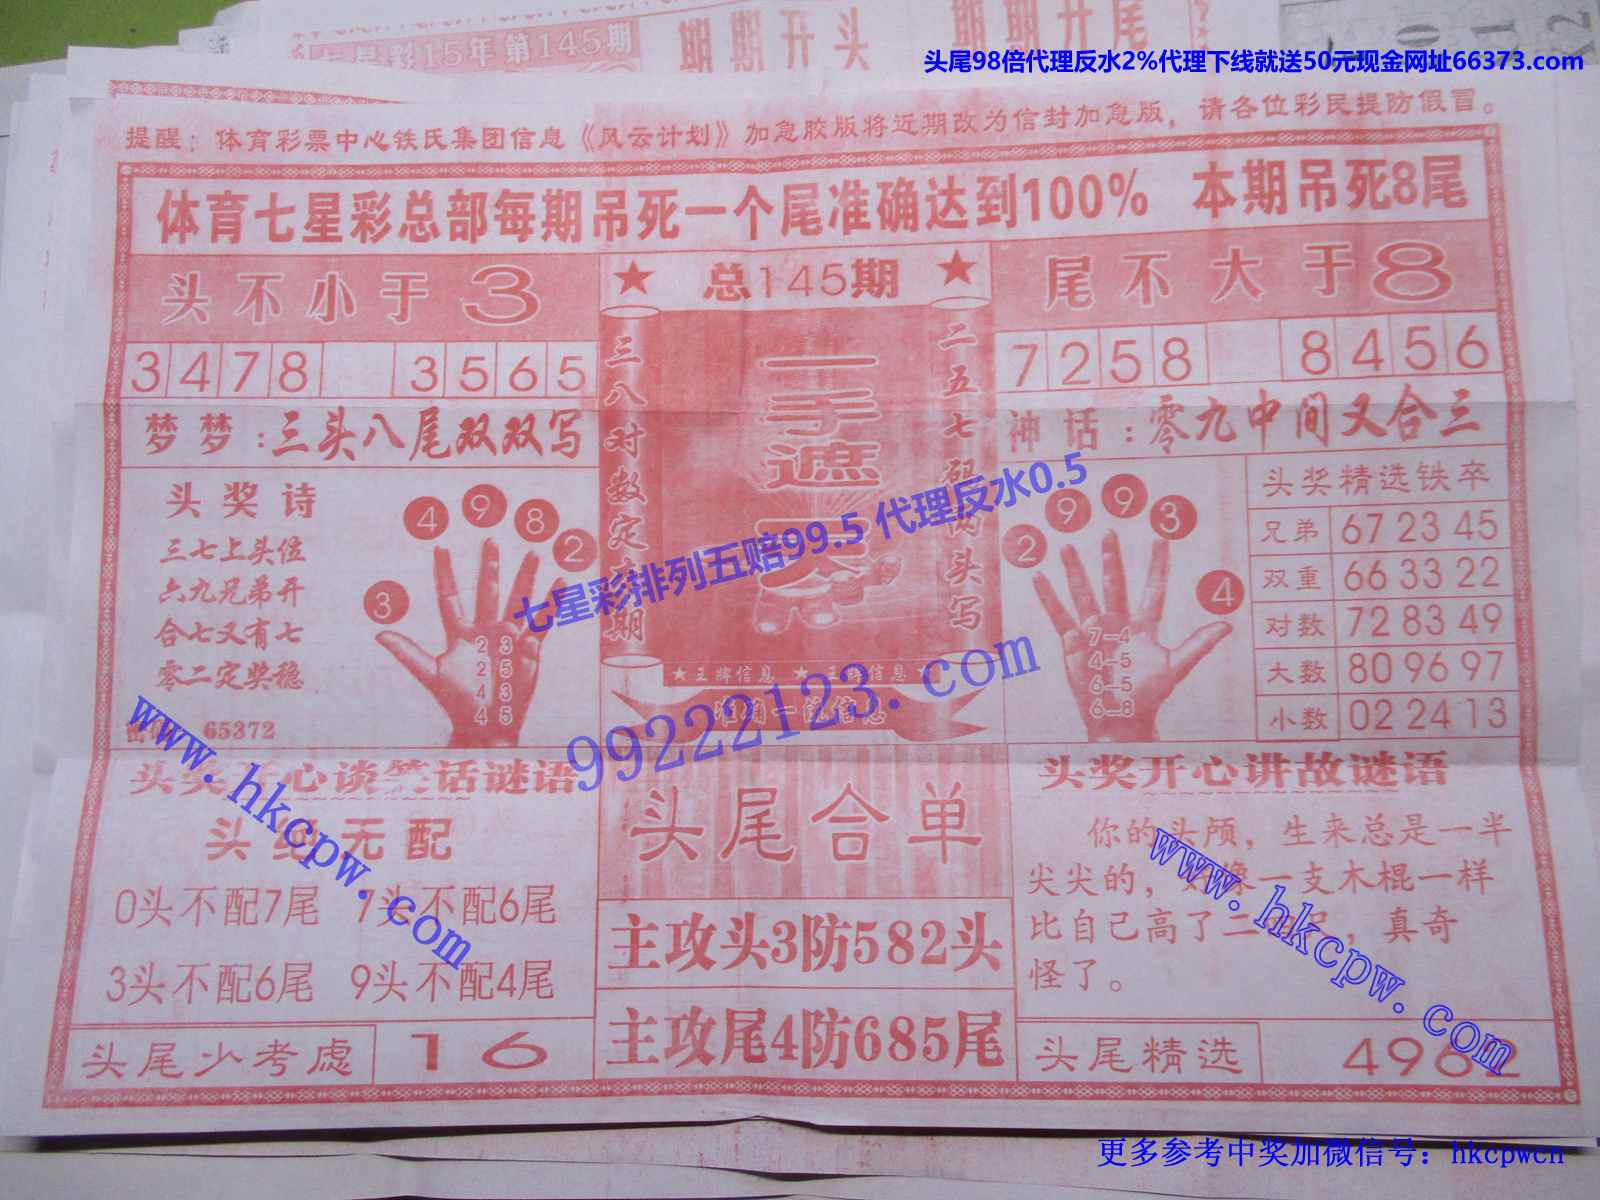 七星彩15年第145期 期期开头 期期开尾
头尾98倍代理反水2%代理下线就送50元现金网址66373.com
提醒：体育彩票中心铁氏集团信息《风云计划》加急胶版将近期改为信封加急版，请各位彩民提防假冒。
体育七星彩总部每期吊死一个尾准确达到100% 本期吊死8尾
头不小于3
★ 总145期 ★
尾不大于8
3478 3565
7258 8456
三八对数定 期
一手遮天
二五七码 头写
梦梦：三头八尾双双写
神话：零九中间又合三
头奖诗
三七上头位
六九兄弟开
合七又有七
零二定奖稳
65372
3 4 9 8 2
2 3
2 5
4 3
4 5
2 9 9 3 4
7-4
4-5
6-5
6-8
头奖精选铁卒
兄弟 67 23 45
双重 66 33 22
对数 72 83 49
大数 80 96 97
小数 02 24 13
七星彩排列五赔99.5 代理反水0.5
★王牌信息 ★王牌信息★
准确一流信息
99222123.com
www.hkcpw.com
头奖开心谈笑话谜语
头绝无配
0头不配7尾 7头不配6尾
3头不配6尾 9头不配4尾
头尾少考虑 16
头尾合单
主攻头3防582头
主攻尾4防685尾
头奖开心讲故谜语
你的头颅，生来总是一半
尖尖的，好像一支木棍一样
比自己高了二 ，真奇
怪了。
www.hkcpw.com
头尾精选 4962
更多参考中奖加微信号：hkcpwcn